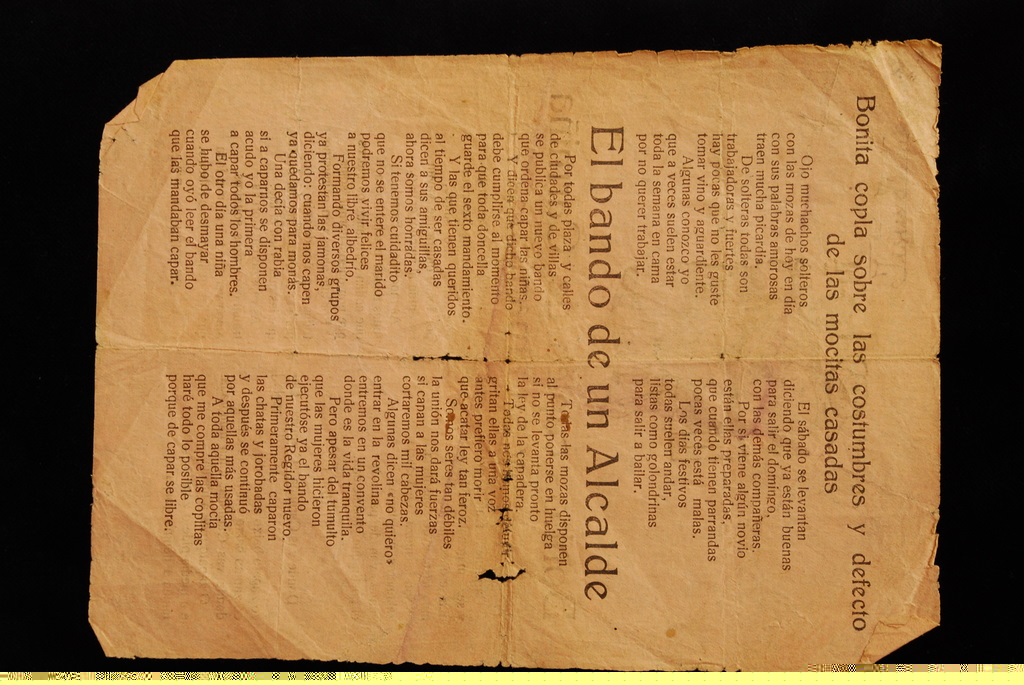 Bonita copla sobre las costumbres y defecto
de las mocitas casadas
Ojo muchachos solteros
con las mozas de hoy en día
con sus palabras amorosas
traen mucha picardía.
De solteras todas son
trabajadoras y fuertes
hay pocas que no les guste
tomar vino y aguardiente.
Algunas conozco yo
que a veces suelen estar
toda la semana en cama
por no querer trabajar.
El sábado se levantan
diciendo que ya están buenas
para salir el domingo,
con las demás compañeras.
Por si viene algún novio
están ellas preparadas,
que cuando tienen parrandas
pocas veces está malas.
Los días festivos
todas suelen andar,
listas como golondrinas
para salir a bailar.
El bando de un Alcalde
Por todas plaza y calles
de ciudades y de villas
se publica un nuevo bando
que ordena capar las niñas.
Y dicen que dicho bando
debe cumplirse al momento
para que toda doncella
guarde el sexto mandamiento.
Y las que tienen queridos
al tiempo de ser casadas
dicen a sus amiguitas,
ahora somos honradas.
Si tenemos cuidadito
que no se entere el marido
podremos vivir felices
a nuestro libre albedrío.
Formando diversos grupos
ya protestan las jamonas,
diciendo: cuando nos capen
ya «quedamos para monas.
Una decía con rabia
si a caparnos se disponen
acudo yo la primera
a capar todos los hombres.
El otro día una niña
se hubo de desmayar
cuando oyó leer el bando
que las mandaban capar.
Todas las mozas disponen
al punto ponerse en huelga
si no se levanta pronto
la ley de la capadera.
Todas
gritan ellas a una voz
antes prefiero morir
que acatar ley tan feroz.
Somos seres tan débiles
la unión nos dará fuerzas
si capan a las mujeres
cortaremos mil cabezas.
Algunas dicen «no quiero»
entrar en la revolina
entremos en un convento
donde es la vida tranquila.
Pero apesar del tumulto
que las mujeres hicieron
ejecutóse ya el bando
de nuestro Regidor nuevo.
Primeramente caparon
las chatas y jorobadas
y después se continuó
por aquellas más usadas.
A toda aquella mocia
que me compre las coplitas
haré todo lo posible
porque de capar se libre.